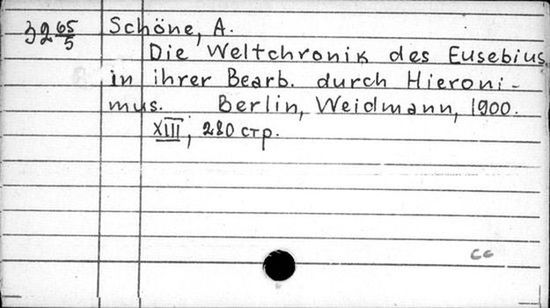 З2 65/5
Schöne, A.
Die Weltchronik des Eusebius
in ihrer Bearb. durch Hieroni-
mus. Berlin, Weidmann, 1900.
XIII, 280 стр.
сс